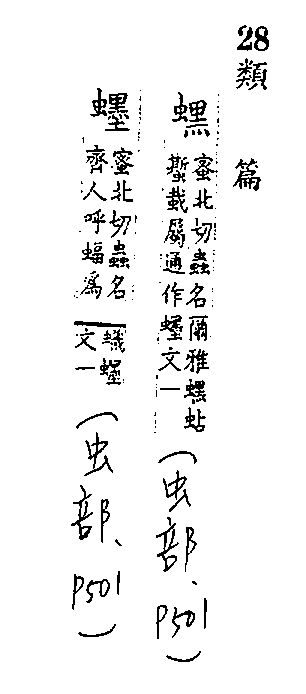 28類篇
蟔蜜北切蟲名爾雅蟔蛅
蟴載屬通作䘃文一
(虫部、P501)
䘃蜜北切蟲名
齊人呼蝠爲
蟙䘃
文一
(虫部、P501)